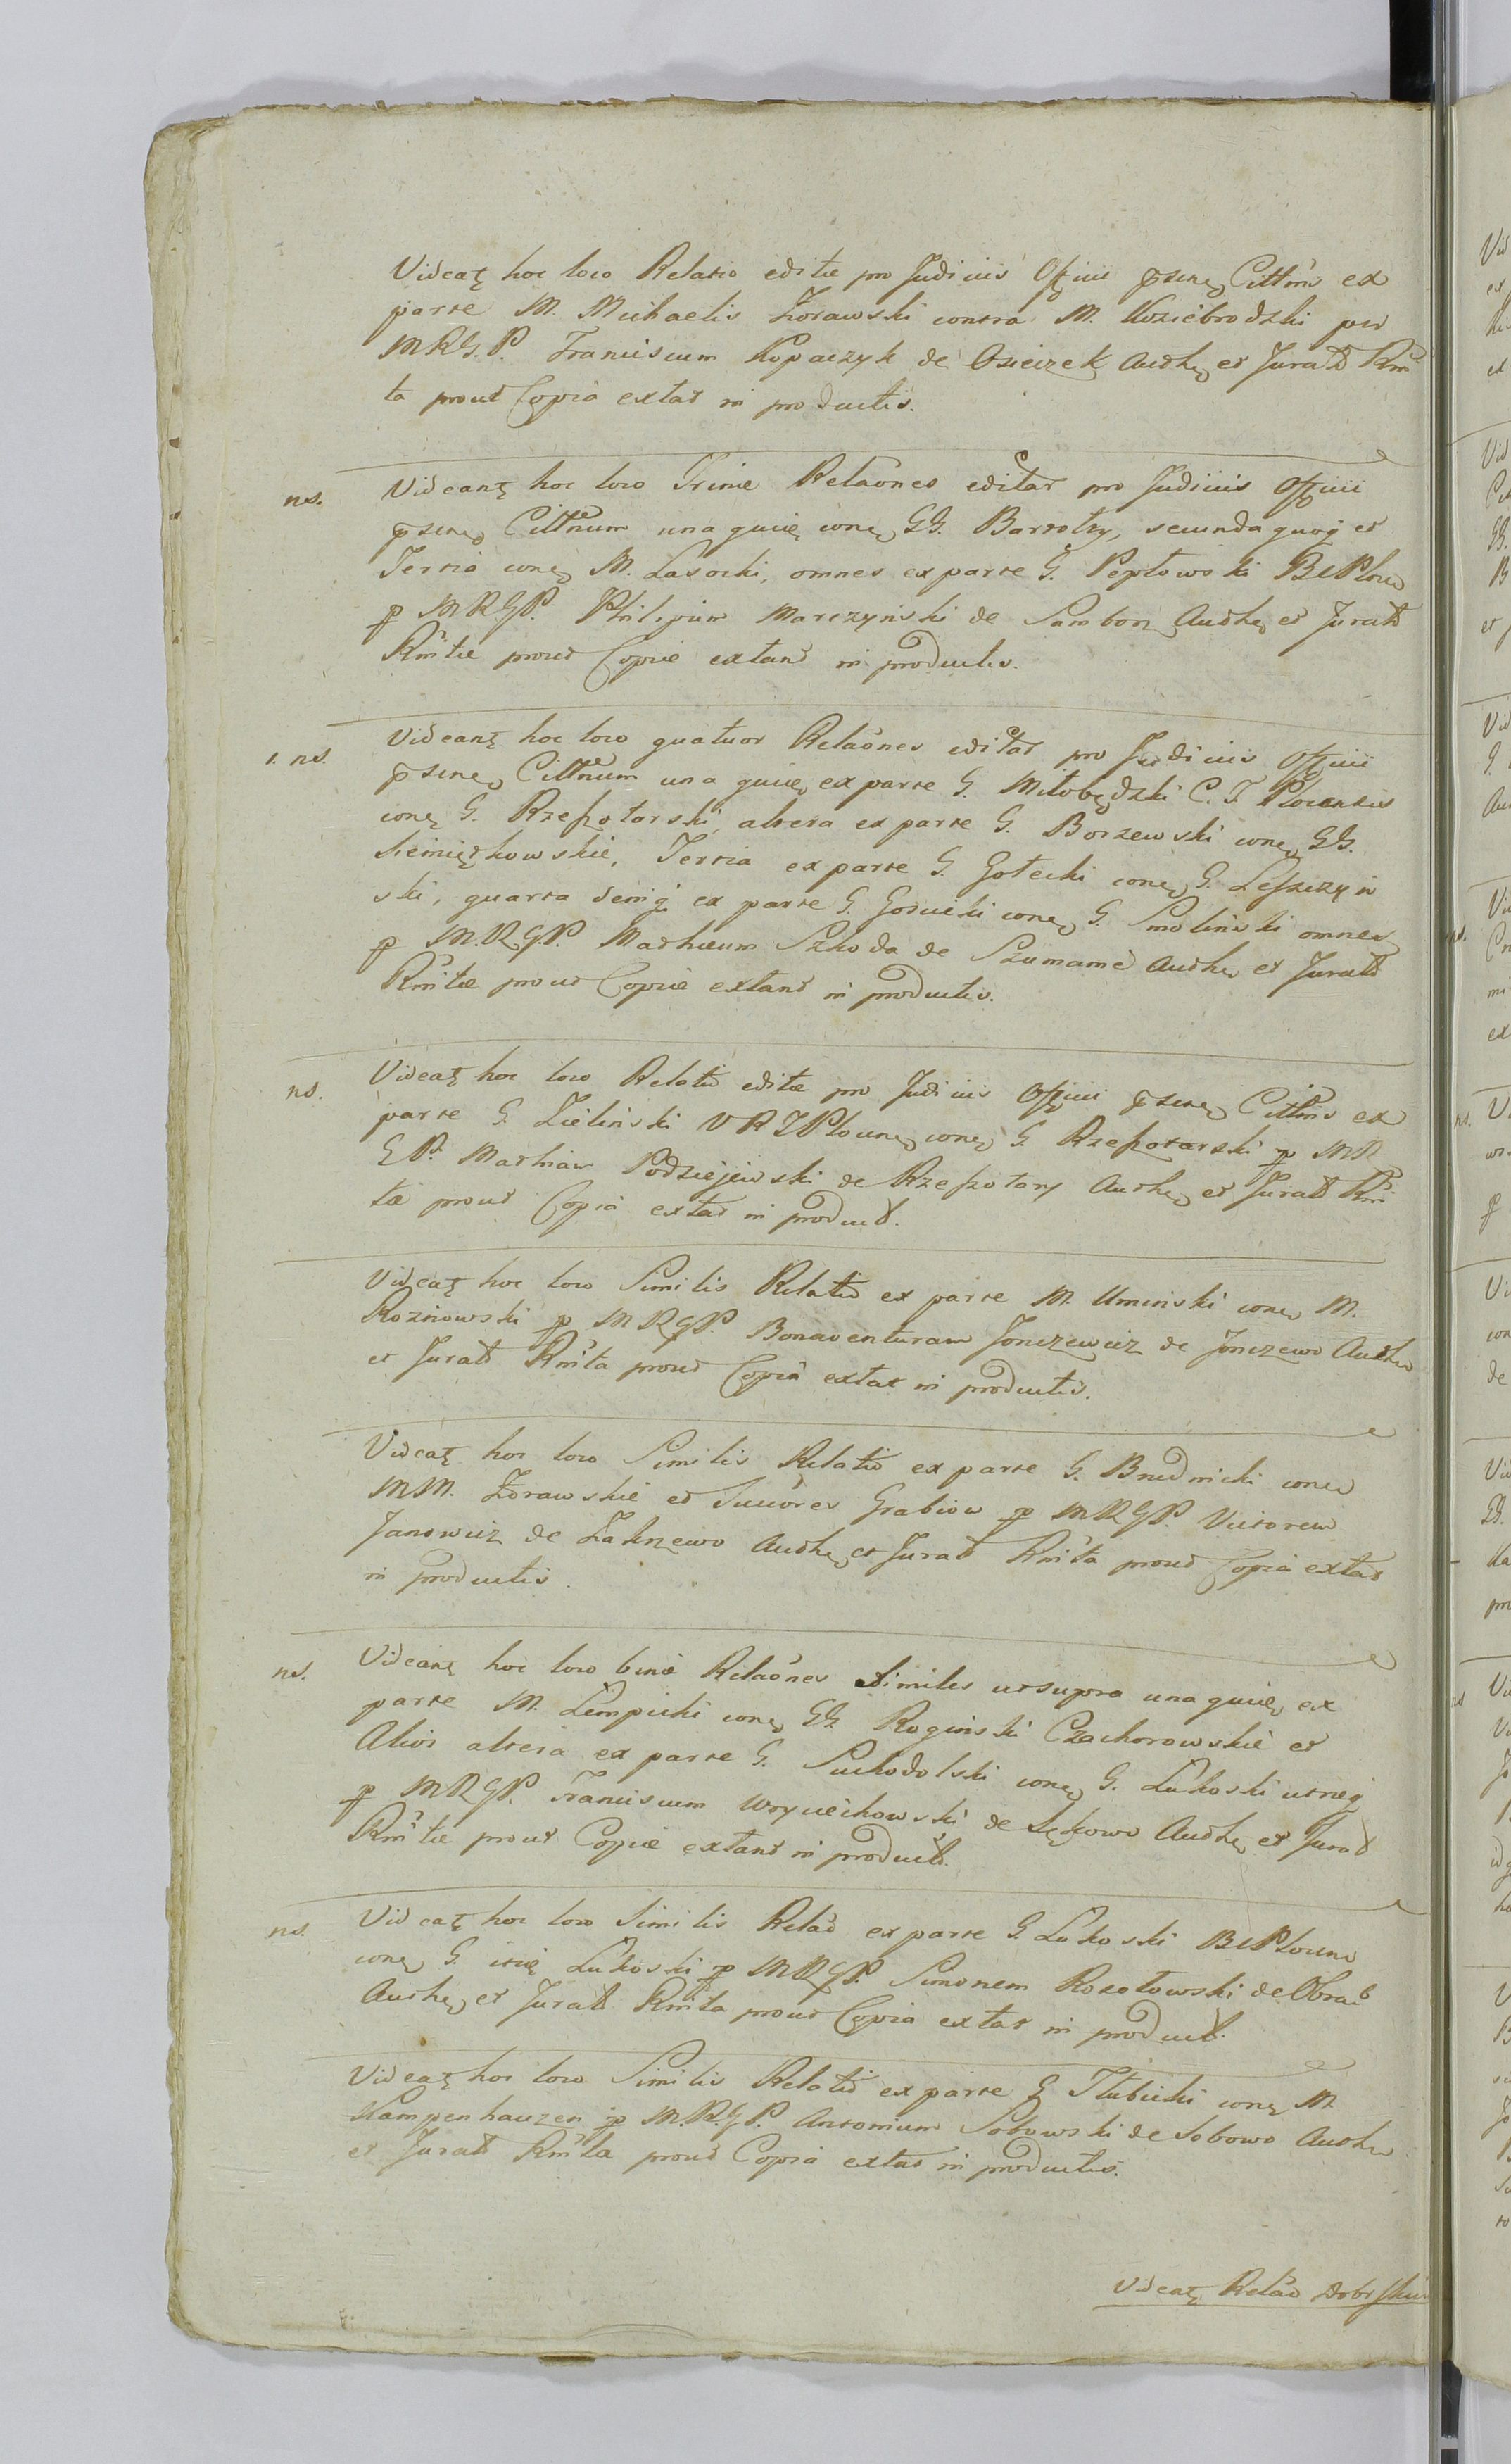 Videatꝫ hoc loco Relatio editæ pro Judiciis Officii psenꝫ Cittñis ex
parte M. Michaelis Żorawski contra M. Koziebrodzki per
MRG.P. Franciscum Kopaczyk de Osieczek Authꝫ et Jurat Rñi
ta prout Copia extat in productis.
ns.
Videantꝫ hoc loco Trinæ Relaões editar pro Judiciis Officii
psenꝫ Cittñum una quiꝫ conꝫ GG. Bartołty, secunda quoqꝫ et
Tertia conꝫ M. Lasocki, omnes ex parte G. Pepłowski BCPloc
p MRGP. Philippum Marczyński de Samborz Authꝫ et Jurat
Rñitæ prout Copiæ extant in productis.
1. ns.
Videantꝫ hoc loco quatuor Relaões editar pro Judiciis Officii
psenꝫ Cittñum una quiꝫ ex parte G. Miłobędzki C. T. Plocensis
conꝫ G. Rzeszotarski, altera ex parte G. Borzewski conꝫ GG.
Siemiątkowskie, Tertia ex parte G. Gołecki conꝫ G. Leszczyń
ski, quarta deniqꝫ ex parte G. Gościcki conꝫ G. Smoliński omnes
p M.R.G.P. Mathæum Szkoda de Szumanie Authꝫ et Jurat
Rñitæ prout Copiæ extant in productis.
ns.
Videatꝫ hoc loco Relatio editæ pro Judiciis Officii psenꝫ Cittñis ex
parte G. Zieliński VRTPlocunꝫ conꝫ G. Rzeszotarski p MR
GP. Mathiam Podziejewski de Rzeszotary Authꝫ et Jurat Rñi
ta prout Copia extat in product.
Videatꝫ hoc loco Similis Relatio ex parte M. Umiński conꝫ M.
Roznowski p MRGP. Bonaventuram Jonczewicz de Jonczewo Authꝫ
et Jurat Rñita prout Copia extat in productis.
Videatꝫ hoc loco Similis Relatio ex parte G. Brudnicki conꝫ
MM. Żorawskie et Succores Grabiow p MRGP. Victorem
Janowicz de Zakrzewo Authꝫ et Jurat Rñita prout Copia extat
in productis.
ns.
Videantꝫ hoc loco binæ Relaões Similes ut supra una quiꝫ ex
parte M. Lempicki conꝫ GG Rogiński Czachorowskie et
Alios altera ex parte G. Suchodolski conꝫ G. Łukoski utrieqꝫ
p MRGP. Franciscum Woyciechowski de Sękowo Authꝫ et Jurat
Rñitæ prout Copiæ extant in product.
ns.
Videatꝫ hoc loco Similis Relao ex parte G. Łukoski BCPlocun
conꝫ G. itiꝫ Łukoski p MRGP. Simonem Rozotowski de Obrab
Authꝫ et Jurat Rñita prout Copia extat in product.
Videatꝫ hoc loco Similis Relatio ex parte G Tłubicki conꝫ M
Kampenhauzen p M.R.G.P. Antonium Sobowski de Sobowo Authꝫ
et Jurat Rñita prout Copia extat in productis.
Videatꝫ Relao